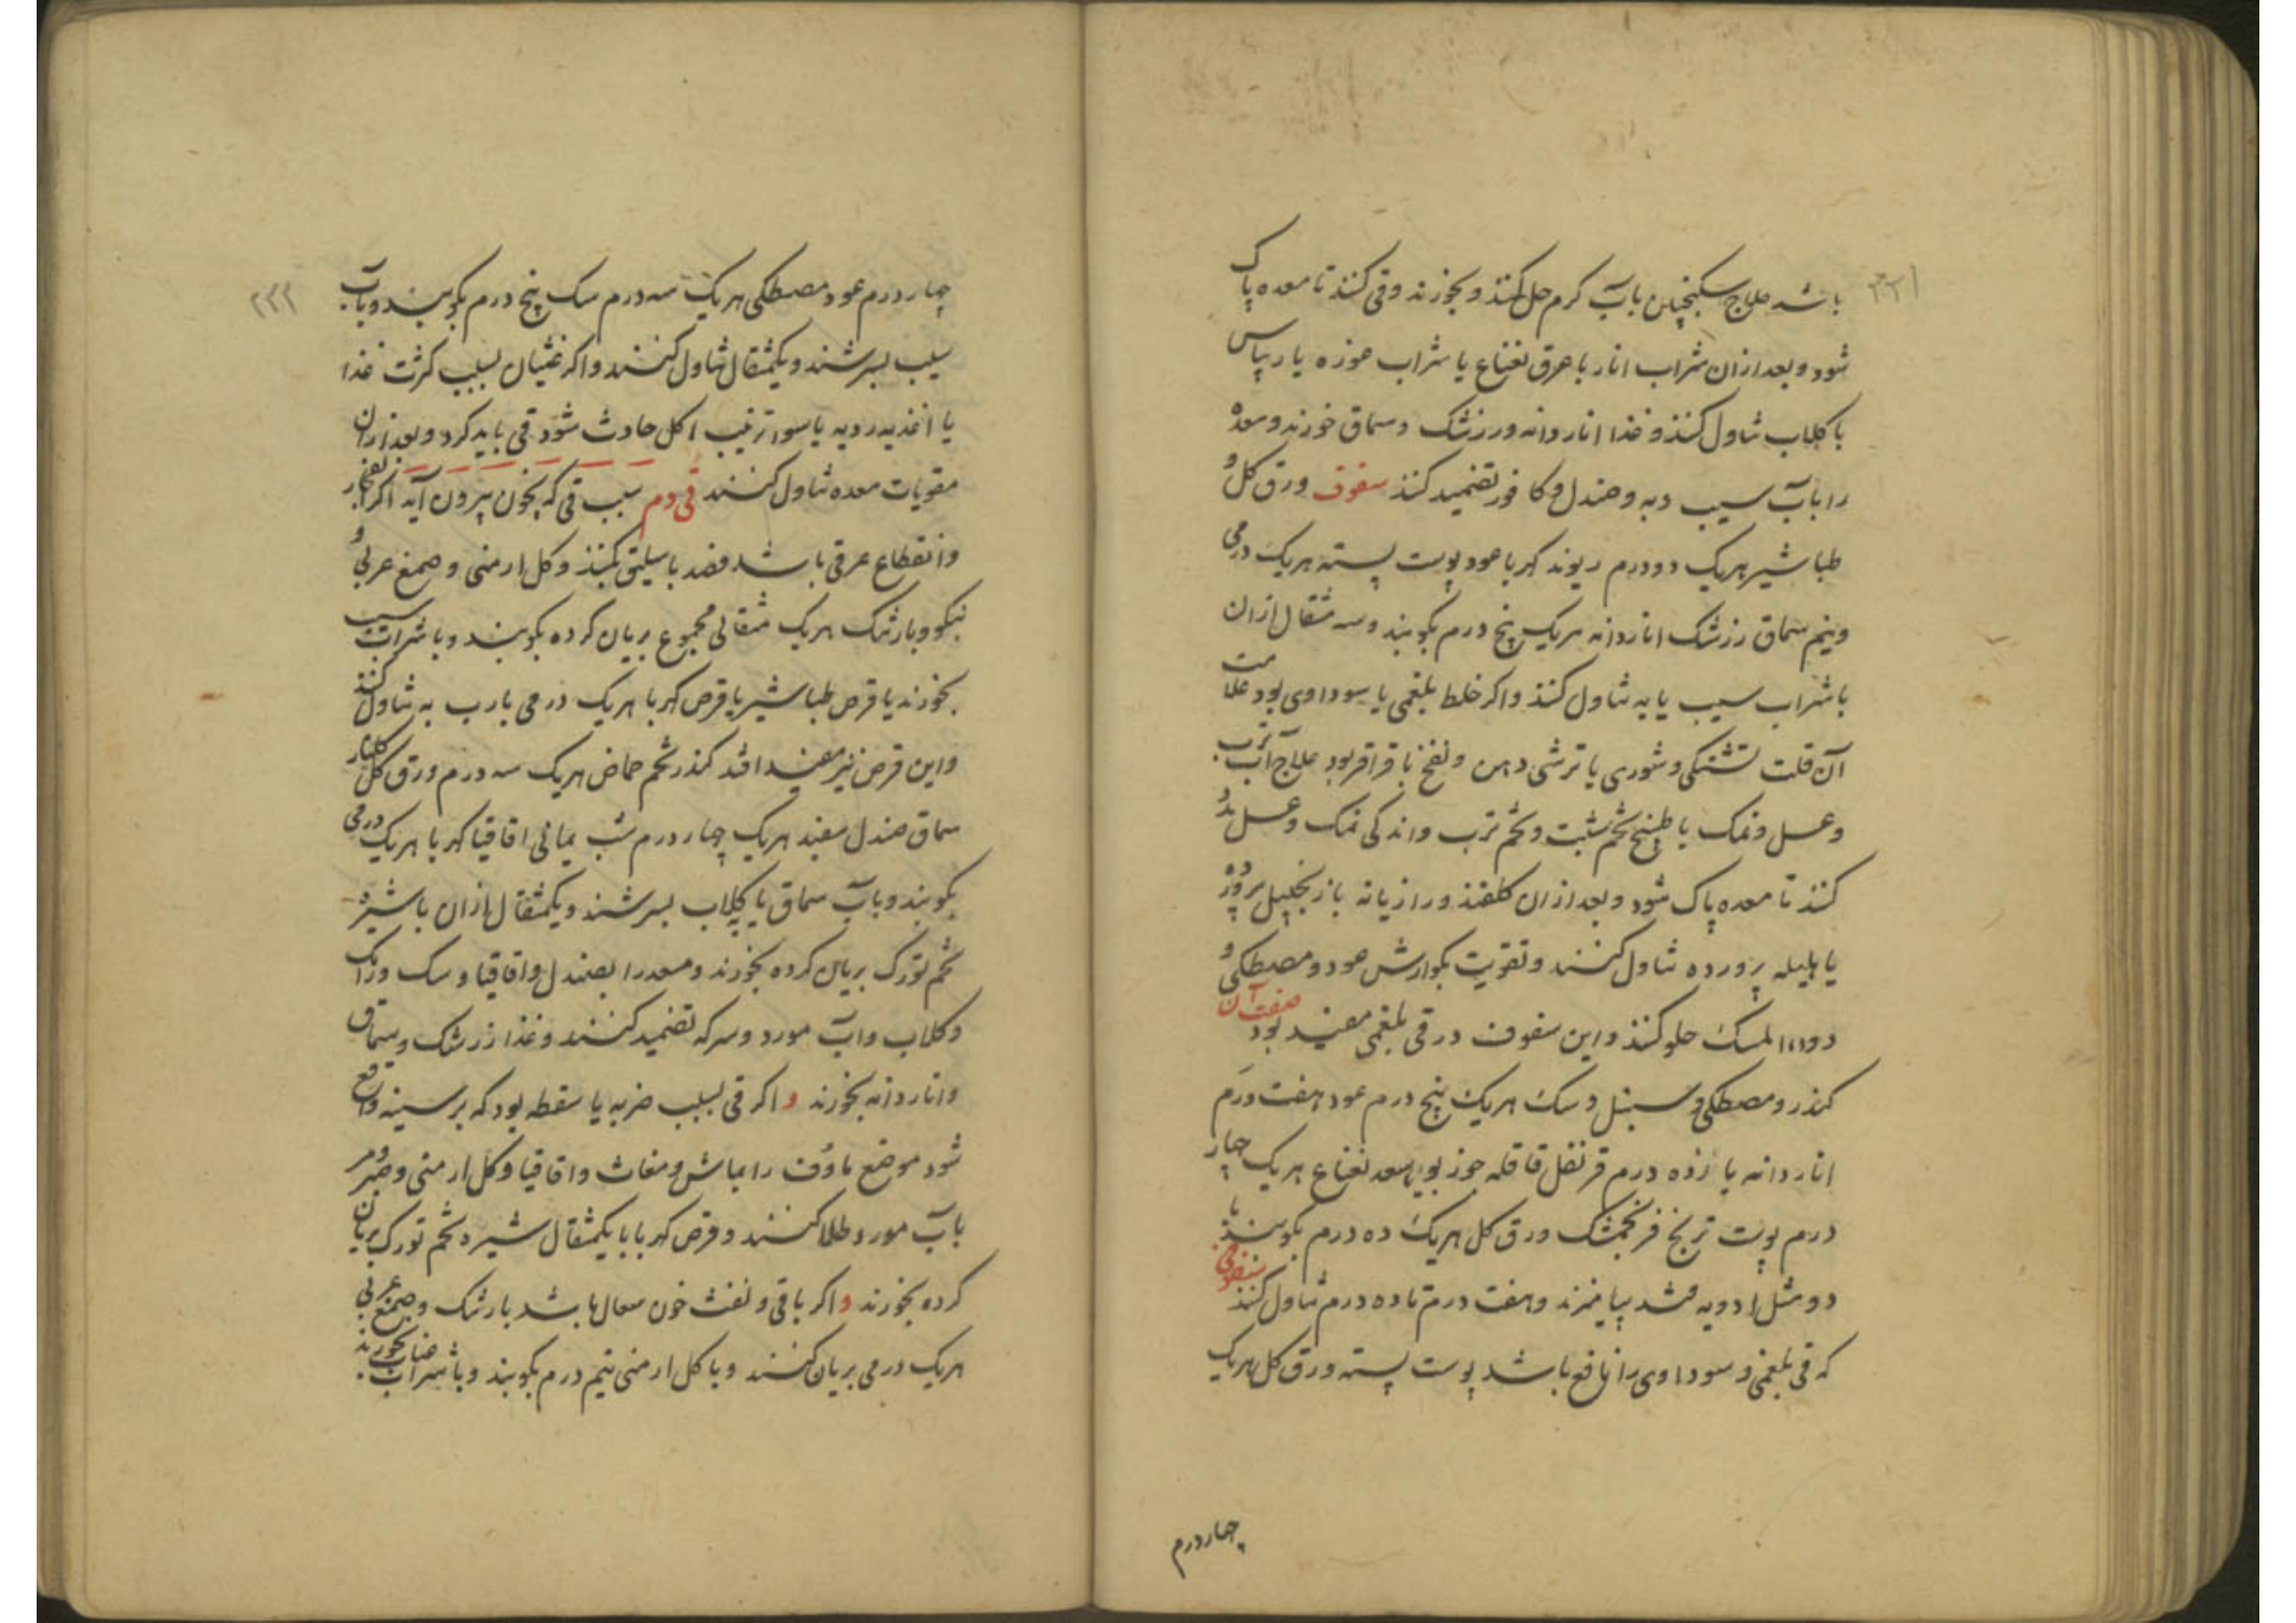 ۳۳۱
باشد علاج سکنجبین بآب کرم حل کنند و بخورند و قی کنند تا معده پاک
شود و بعد ازان شراب انار با عرق نعناع یا شراب غوره یا ریباس
با کلاب تناول کنند و غذا اناردانه و رزشک و سماق خورند و معده
را بآب سیب و به و صندل و کافور تضمید کنند سفوف ورق کل و
طباشیر هریک دو درم ریوند کهربا عود پوست پسته هریک درمی
و نیم سماق رزشک اناردانه هریک پنج درم بکوبند و سه مثقال ازان
با شراب سیب یا به تناول کنند و اکر خلط بلغمی یا سوداوی بود علامت
آن قلت تشنکی و شوری یا ترشی دهن و نفخ با قراقر بود علاج آب ترب
و عسل و نمک یا طبیخ تخم شبت و تخم ترب و اندکی نمک و عسل بدو
کنند تا معده پاک شود و بعد ازان کلقند و رازیانه یا زنجبیل پرورده
یا هلیله پرورده تناول کنند و تقویت بکوارش عود و مصطکی و
دواء المسک حلو کنند و این سفوف در قی بلغمی مفید بود صفت آن
کندر و مصطکی و سنبل و سک هریک پنج درم عود هفت درم
اناردانه پانزده درم قرنفل قاقله جوز بویا سعد نعناع هریک چهار
درم پوست ترنج فرنجمشک ورق کل هریک ده درم بکوبند با
دو مثل ادویه قند بیامیزند و هفت درم تا ده درم تناول کنند سفوفی
که قی بلغمی و سوداوی را نافع باشد پوست پسته ورق کل هریک
چهار درم
۳۳۲
چهار درم عود مصطکی هریک سه درم سک پنج درم بکوبند و بآب
سیب بسرشند و یکمثقال تناول کنند و اکر غثیان بسبب کثرت غذا
یا اغذیه ردیه یا سوء ترتیب اکل حادث شود قی باید کرد و بعد ازان
مقویات معده تناول کنند قی دم سبب قی که بخون بیرون آید اکر انفجار
و انقطاع عرقی باشد فصد باسلیق کنند و کل ارمنی و صمغ عربی و
بنکو و بارتنک هریک مثقالی مجموع بریان کرده بکوبند و با شراب سیب
بخورند یا قرص طباشیر یا قرص کهربا هریک درمی با رب به تناول کنند
و این قرص نیز مفید افتد کندر تخم حماض هریک سه درم ورق کل کلنار
سماق صندل سفید هریک چهار درم شب یمانی اقاقیا کهربا هریک درمی
بکوبند و بآب سماق یا کلاب بسرشند و یکمثقال ازان با شیره
تخم تورک بریان کرده بخورند و معده را بصندل و اقاقیا و سک و زاک
و کلاب و آب مورد و سرکه تضمید کنند و غذا زرشک و سماق
و اناردانه بخورند و اکر قی بسبب ضربه یا سقطه بود که بر سینه واقع
شود موضع ماؤف را بماش و مغاث و اقاقیا و کل ارمنی و صبر و مر
بآب مورد طلا کنند و قرص کهربا با یکمثقال شیره تخم تورک بریان
کرده بخورند و اکر با قی و نفث خون سعال باشد بارتنک و صمغ عربی
هریک درمی بریان کنند و با کل ارمنی نیم درم بکوبند و با شراب عناب بخورند